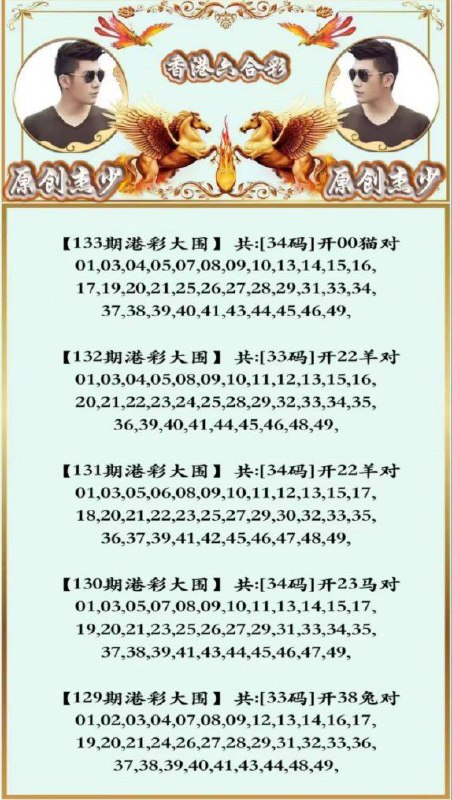 香港六合彩
原创圭少
原创圭少
【133期港彩大围】 共:[34码]开00猫对
01,03,04,05,07,08,09,10,13,14,15,16,
17,19,20,21,25,26,27,28,29,31,33,34,
37,38,39,40,41,43,44,45,46,49,
【132期港彩大围】 共:[33码]开22羊对
01,03,04,05,08,09,10,11,12,13,15,16,
20,21,22,23,24,25,28,29,32,33,34,35,
36,39,40,41,44,45,46,48,49,
【131期港彩大围】 共:[34码]开22羊对
01,03,05,06,08,09,10,11,12,13,15,17,
18,20,21,22,23,25,27,29,30,32,33,35,
36,37,39,41,42,45,46,47,48,49,
【130期港彩大围】 共:[34码]开23马对
01,03,05,07,08,09,10,11,13,14,15,17,
19,20,21,23,25,26,27,29,31,33,34,35,
37,38,39,41,43,44,45,46,47,49,
【129期港彩大围】 共:[33码]开38兔对
01,02,03,04,07,08,09,12,13,14,16,17,
19,20,21,24,26,27,28,29,31,32,33,36,
37,38,39,40,43,44,48,49,